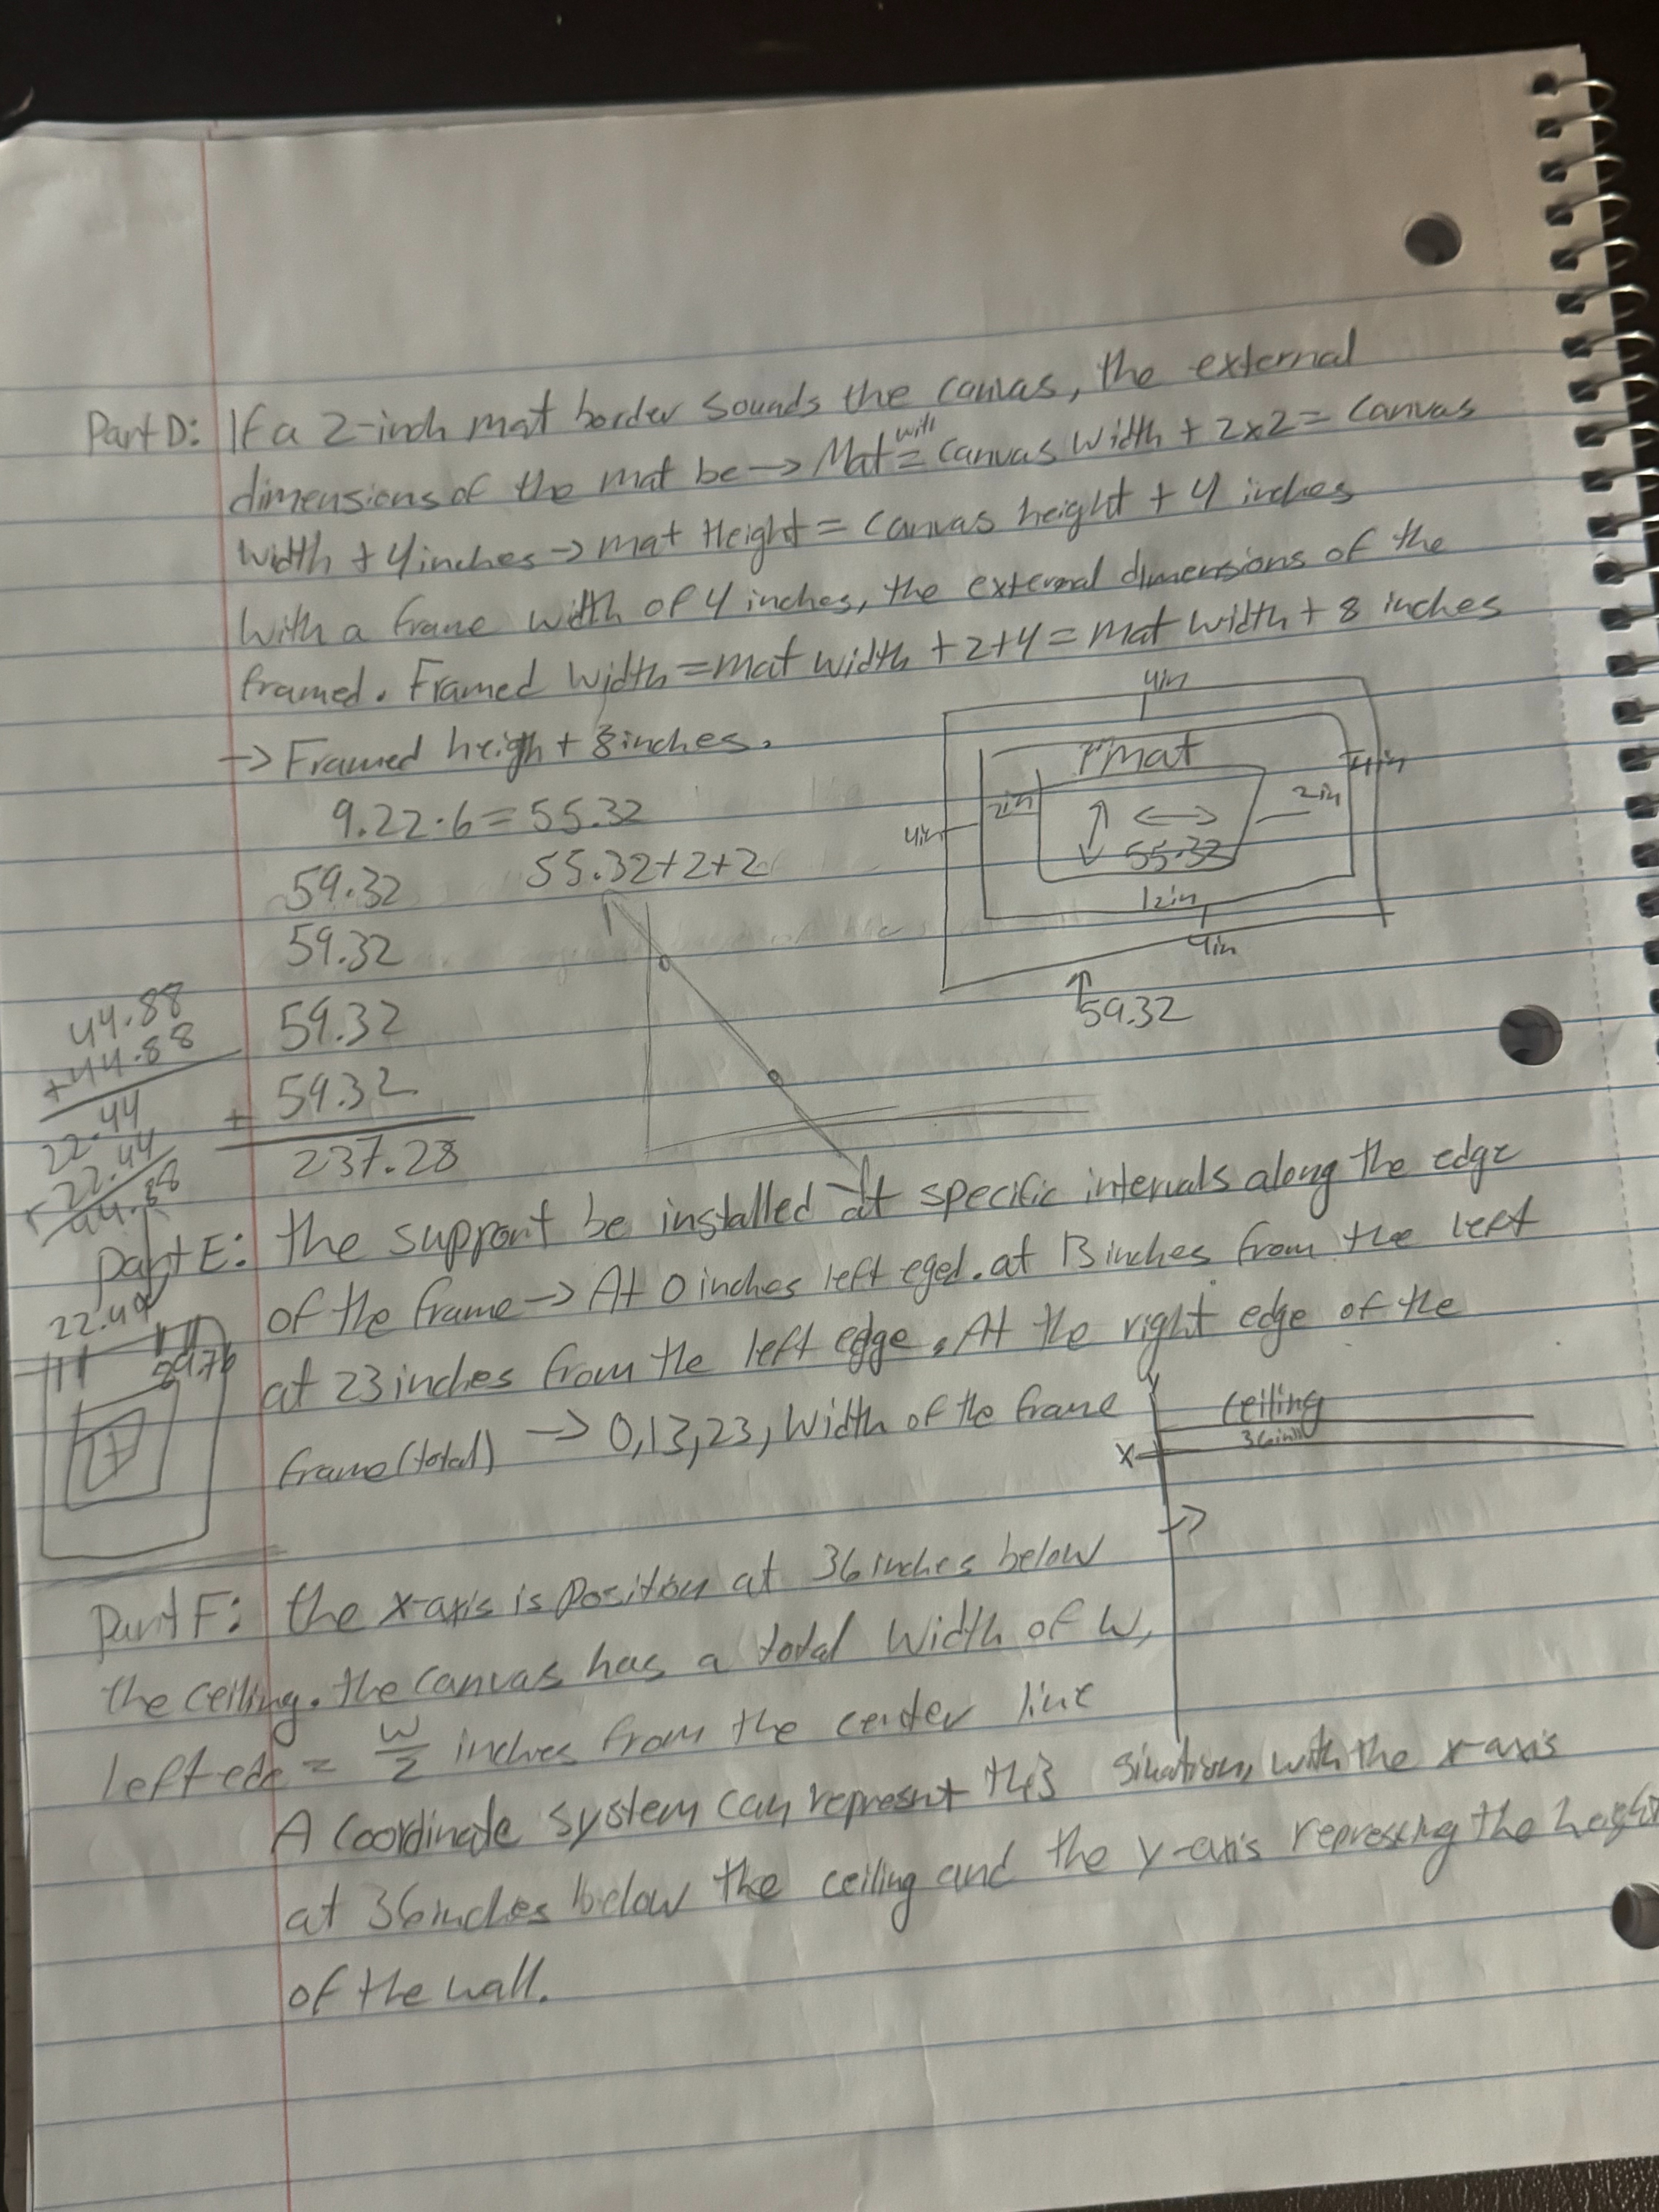 Part D: If a 2-inch mat border sounds the canvas, the external
dimensions of the mat be → Mat with = canvas width + 2x2 = canvas
width + 4 inches → mat Height = canvas height + 4 inches
with a frame width of 4 inches, the external dimensions of the
framed. Framed width = mat width + 2+4 = mat width + 8 inches
→ Framed heigh + 8 inches.
4in
mat
4in
2in
2in
4in
55.32
12in
4in
59.32
9.22·6=55.32
55.32+2+2
59.32
59.32
59.32
+ 59.32
237.28
44.88
+44.88
22.44
22.44
44.88
Part E: the support be installed at specific intervals along the edge
of the frame → At 0 inches left eged. at 13 inches from the left
at 23 inches from the left edge. At the right edge of the
frame (total) → 0,13,23, width of the frame
22.44
89.76
Y
ceiling
36in
X
Part F: the x-axis is position at 36 inches below
the ceiling. the canvas has a total width of W,
left = W/2 inches from the center line
A coordinate system can represnt situation, with the x-axis
at 36 inches below the ceiling and the y-axis the height
of the wall.